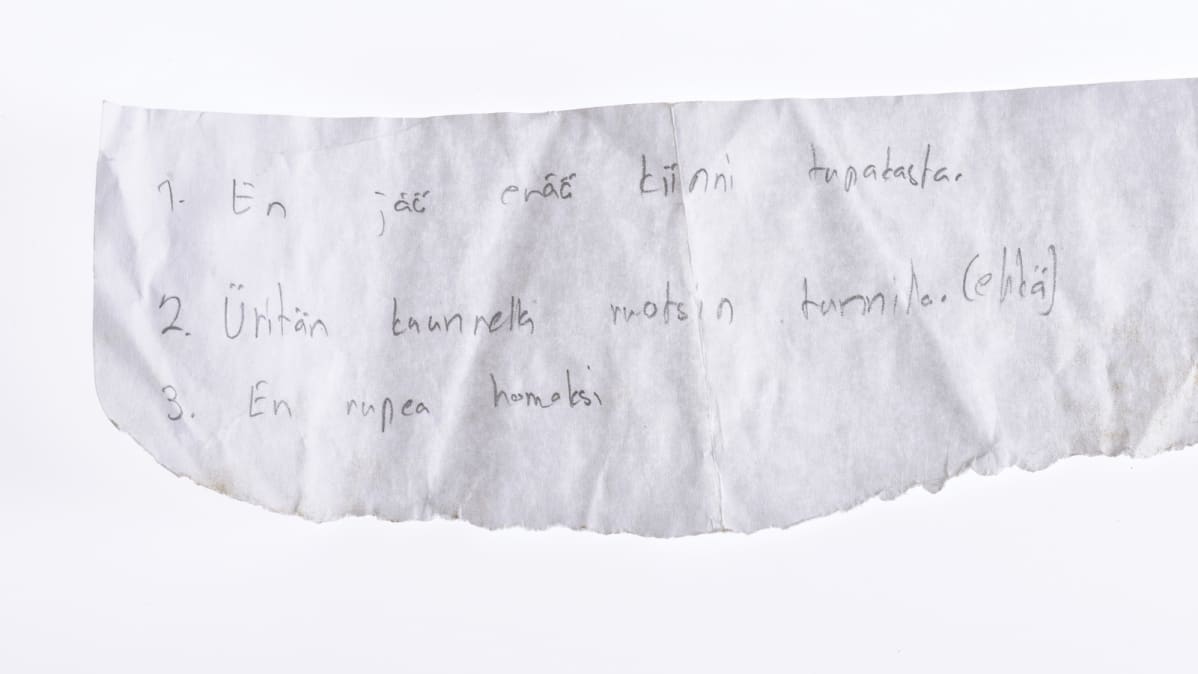 1. En jää enää kiinni tupakasta.
2. Üritän kuunnella ruotsin tunnila. (ehkä)
3. En rupea homoksi